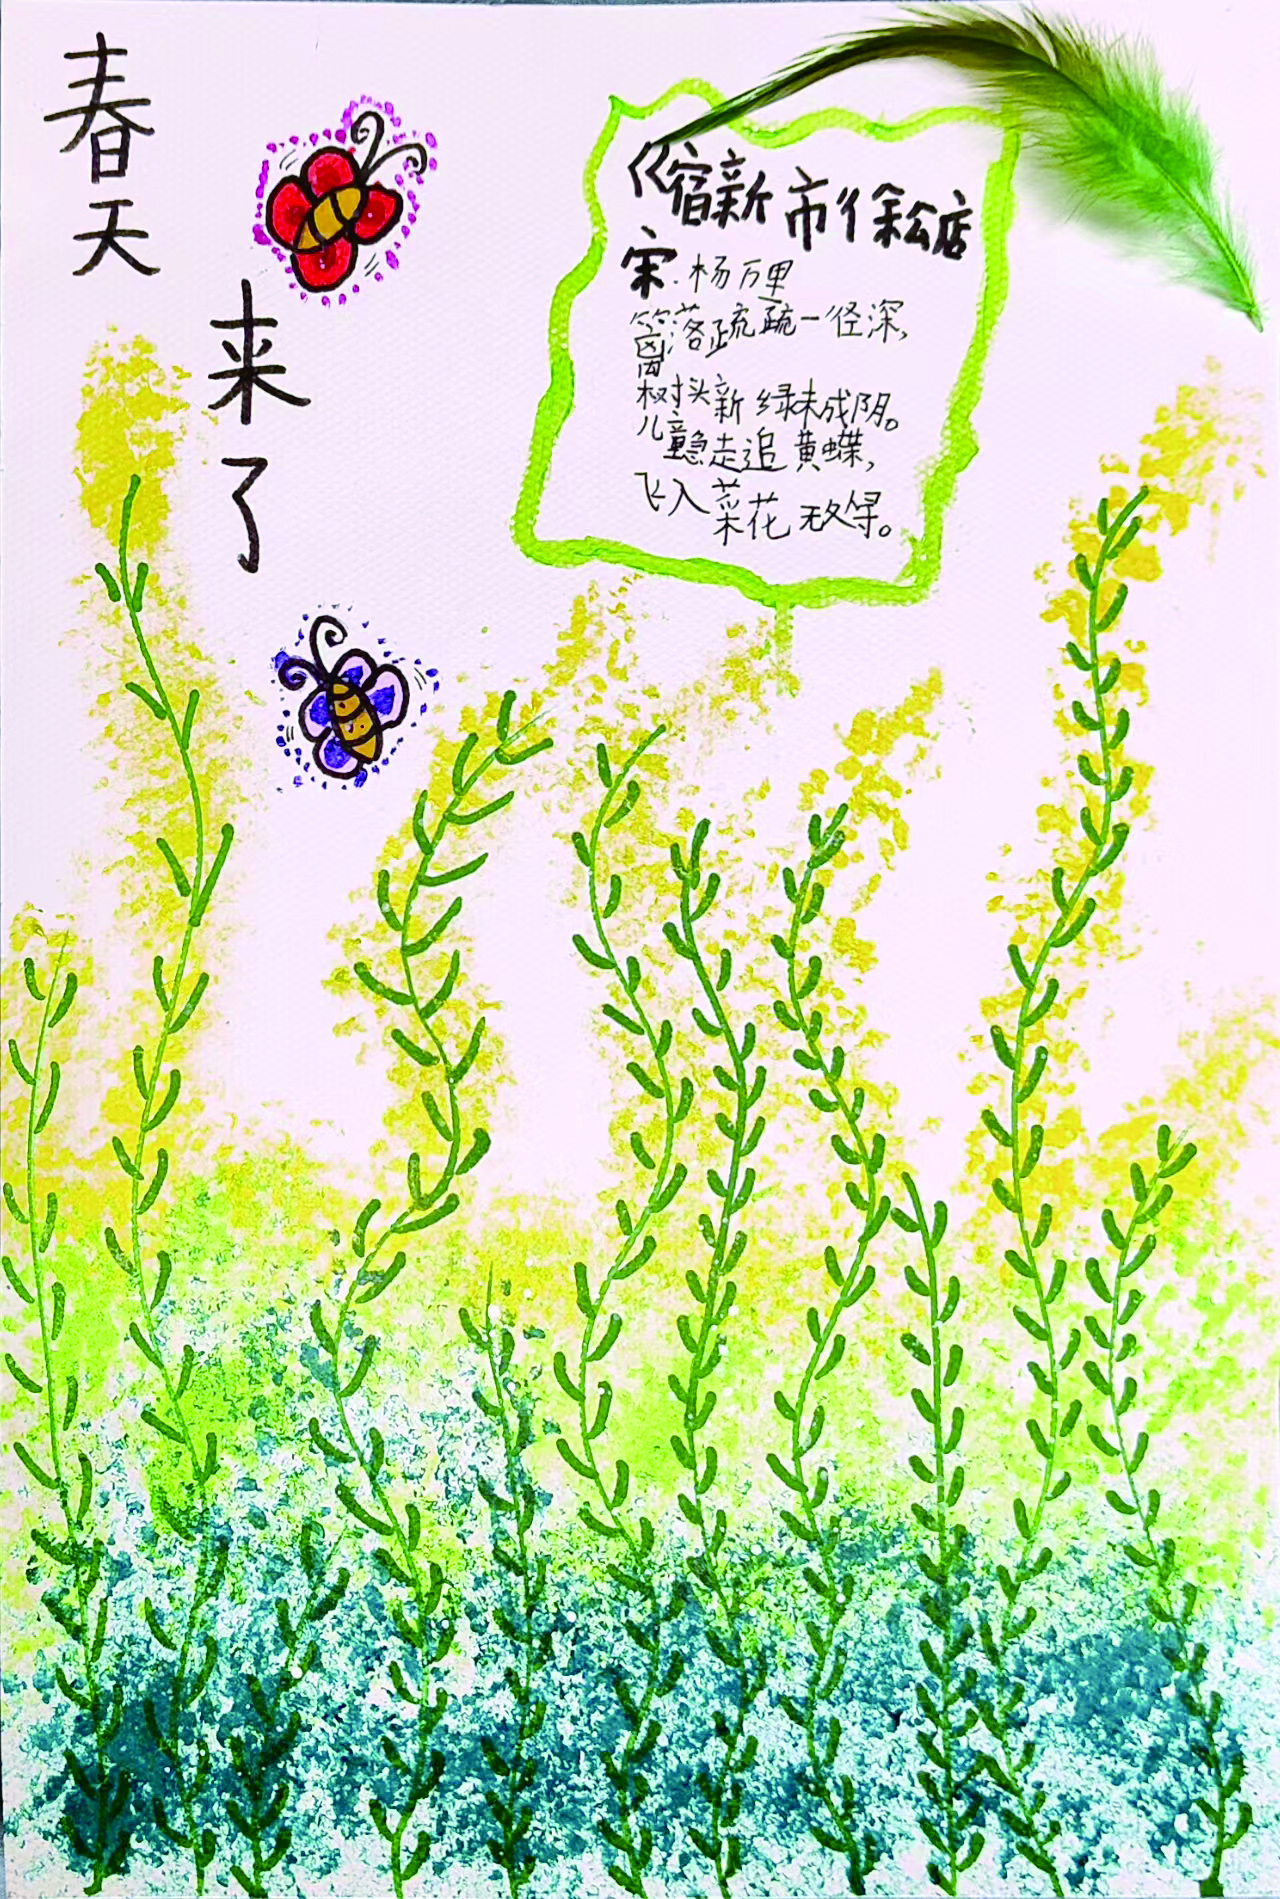 春天
来了
《宿新市徐公店
宋.杨万里
篱落疏疏一径深，
树头新绿未成阴。
儿童急走追黄蝶，
飞入菜花无处寻。